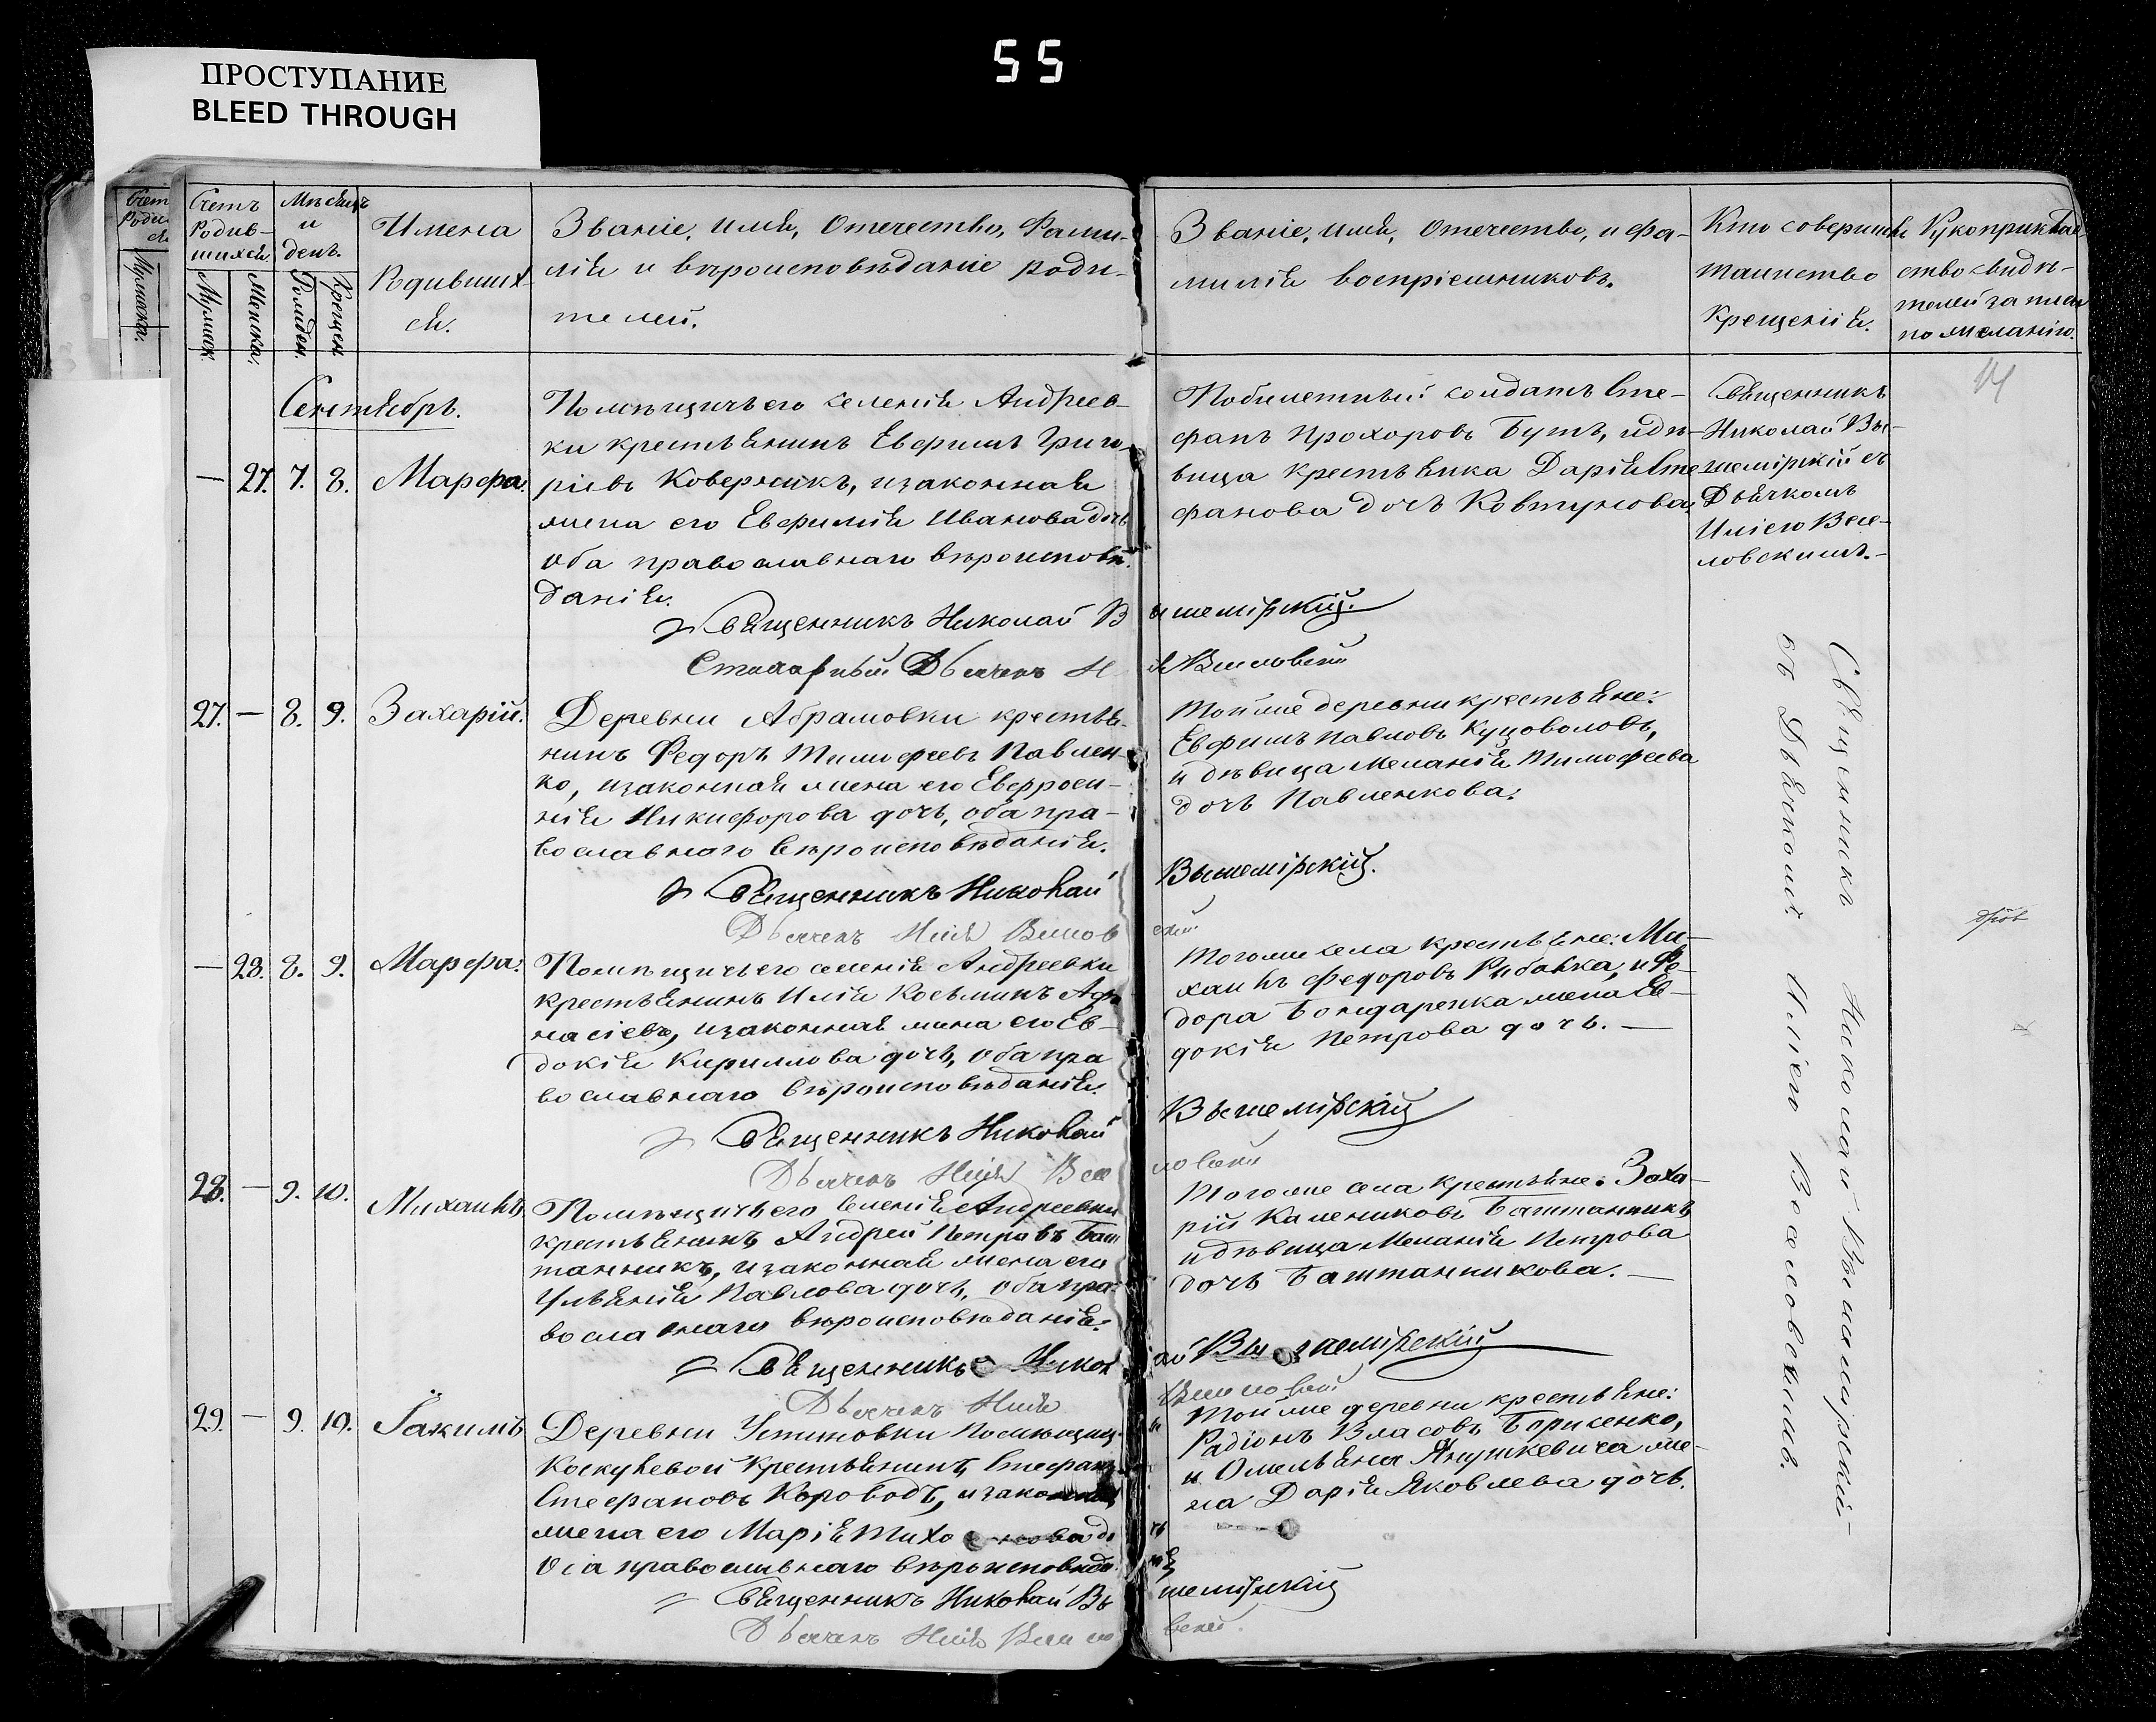 55
ПРОСТУПАНИЕ
BLEED THROUGH
Счетъ
Родив-
шихся.
Мужск.
Женска.
Мѣсяцъ
и
день.
Рожден.
Крещен.
Имена
Родивших
ся.
Званіе, имя, Отечество, Фами-
лія и вѣроисповѣданіе роди-
телей.
Званіе, имя, Отечество, и фа-
милія воспріемниковъ.
Кто совершилъ
таинство
Крещенія.
Рукоприклад
ство свидѣ-
телей записи
по желанію.
Сентябрь.
— 27. 7. 8. Марфа.
Помѣщичьего селенія Андреев-
ки крестьянинъ Евфимъ Григо
ріевъ Коверникъ, и законная
жена его Евфимія Иванова дочь
оба православнаго вѣроисповѣ
данія.
Побилетный солдатъ Сте-
фанъ Прохоровъ Бутъ, и дѣ-
вица крестьянка Дарія Сте
фанова дочь Ковтунова
Священникъ
Николай Вы-
шемірскій съ
Дьячкомъ
Иліею Весе-
ловскимъ.-
Священникъ Николай Вышемірскій.
Дьячекъ
27. — 8. 9. Захарій.
Деревни Абрамовки крестья-
нинъ Федоръ Тимофеевъ Павлен-
ко, и законная жена его Евфроси-
нія Никифорова дочь, оба пра-
вославнаго вѣроисповѣданія.
Тойже деревни крестьяне:
Евфимъ Павловъ Куцоволовъ,
и дѣвица Меланія Тимофеева
дочь Павленкова.
Священникъ Николай Вышемірскій.
Дьячекъ Илія Веселовскій
— 28. 8. 9. Марфа.
Помѣщичьего селенія Андреевки
крестьянинъ Илія Косьминъ Афа
насіевъ, и законная жена его Ев-
докія Кириллова дочь, оба пра
вославнаго вѣроисповѣданія.
Тогоже села крестьяне: Ми-
хаилъ Федоровъ Рибалка, и Фе-
дора Бондаренка жена Ев-
докія Петрова дочь. —
Священникъ Николай Вышемірскій
Дьячекъ Илія Веселовскій
28. — 9. 10. Михаилъ
Помѣщичьего селенія Андреевки
крестьянинъ Андрей Петровъ Баш
танникъ, и законная жена его
Ульянія Павлова дочь, оба пра-
вославнаго вѣроисповѣданія.
Тогоже села крестьяне: Заха-
рій Калениковъ Баштанникъ
и дѣвица Меланія Петрова
дочь Баштанникова. —
Священникъ Николай Вышемірскій
Дьячекъ Илія Веселовскій
29. — 9. 10. Іакимъ
Деревни Устиновки Помѣщицы
крестьянинъ Стефанъ
Стефановъ Короводъ, и законная
жена его Марія Тихонова дочь
Оба православнаго вѣроисповѣда
Тойже деревни крестьяне:
Радіонъ Власовъ Борисенко,
и Омельяна Янушкевича же-
на Дарія Яковлева дочь.
Священникъ Николай Вышемірскій
Дьячекъ Илія Веселовскій
Священникъ Николай Вышемірскій
съ Дьячкомъ Иліею Веселовскимъ.